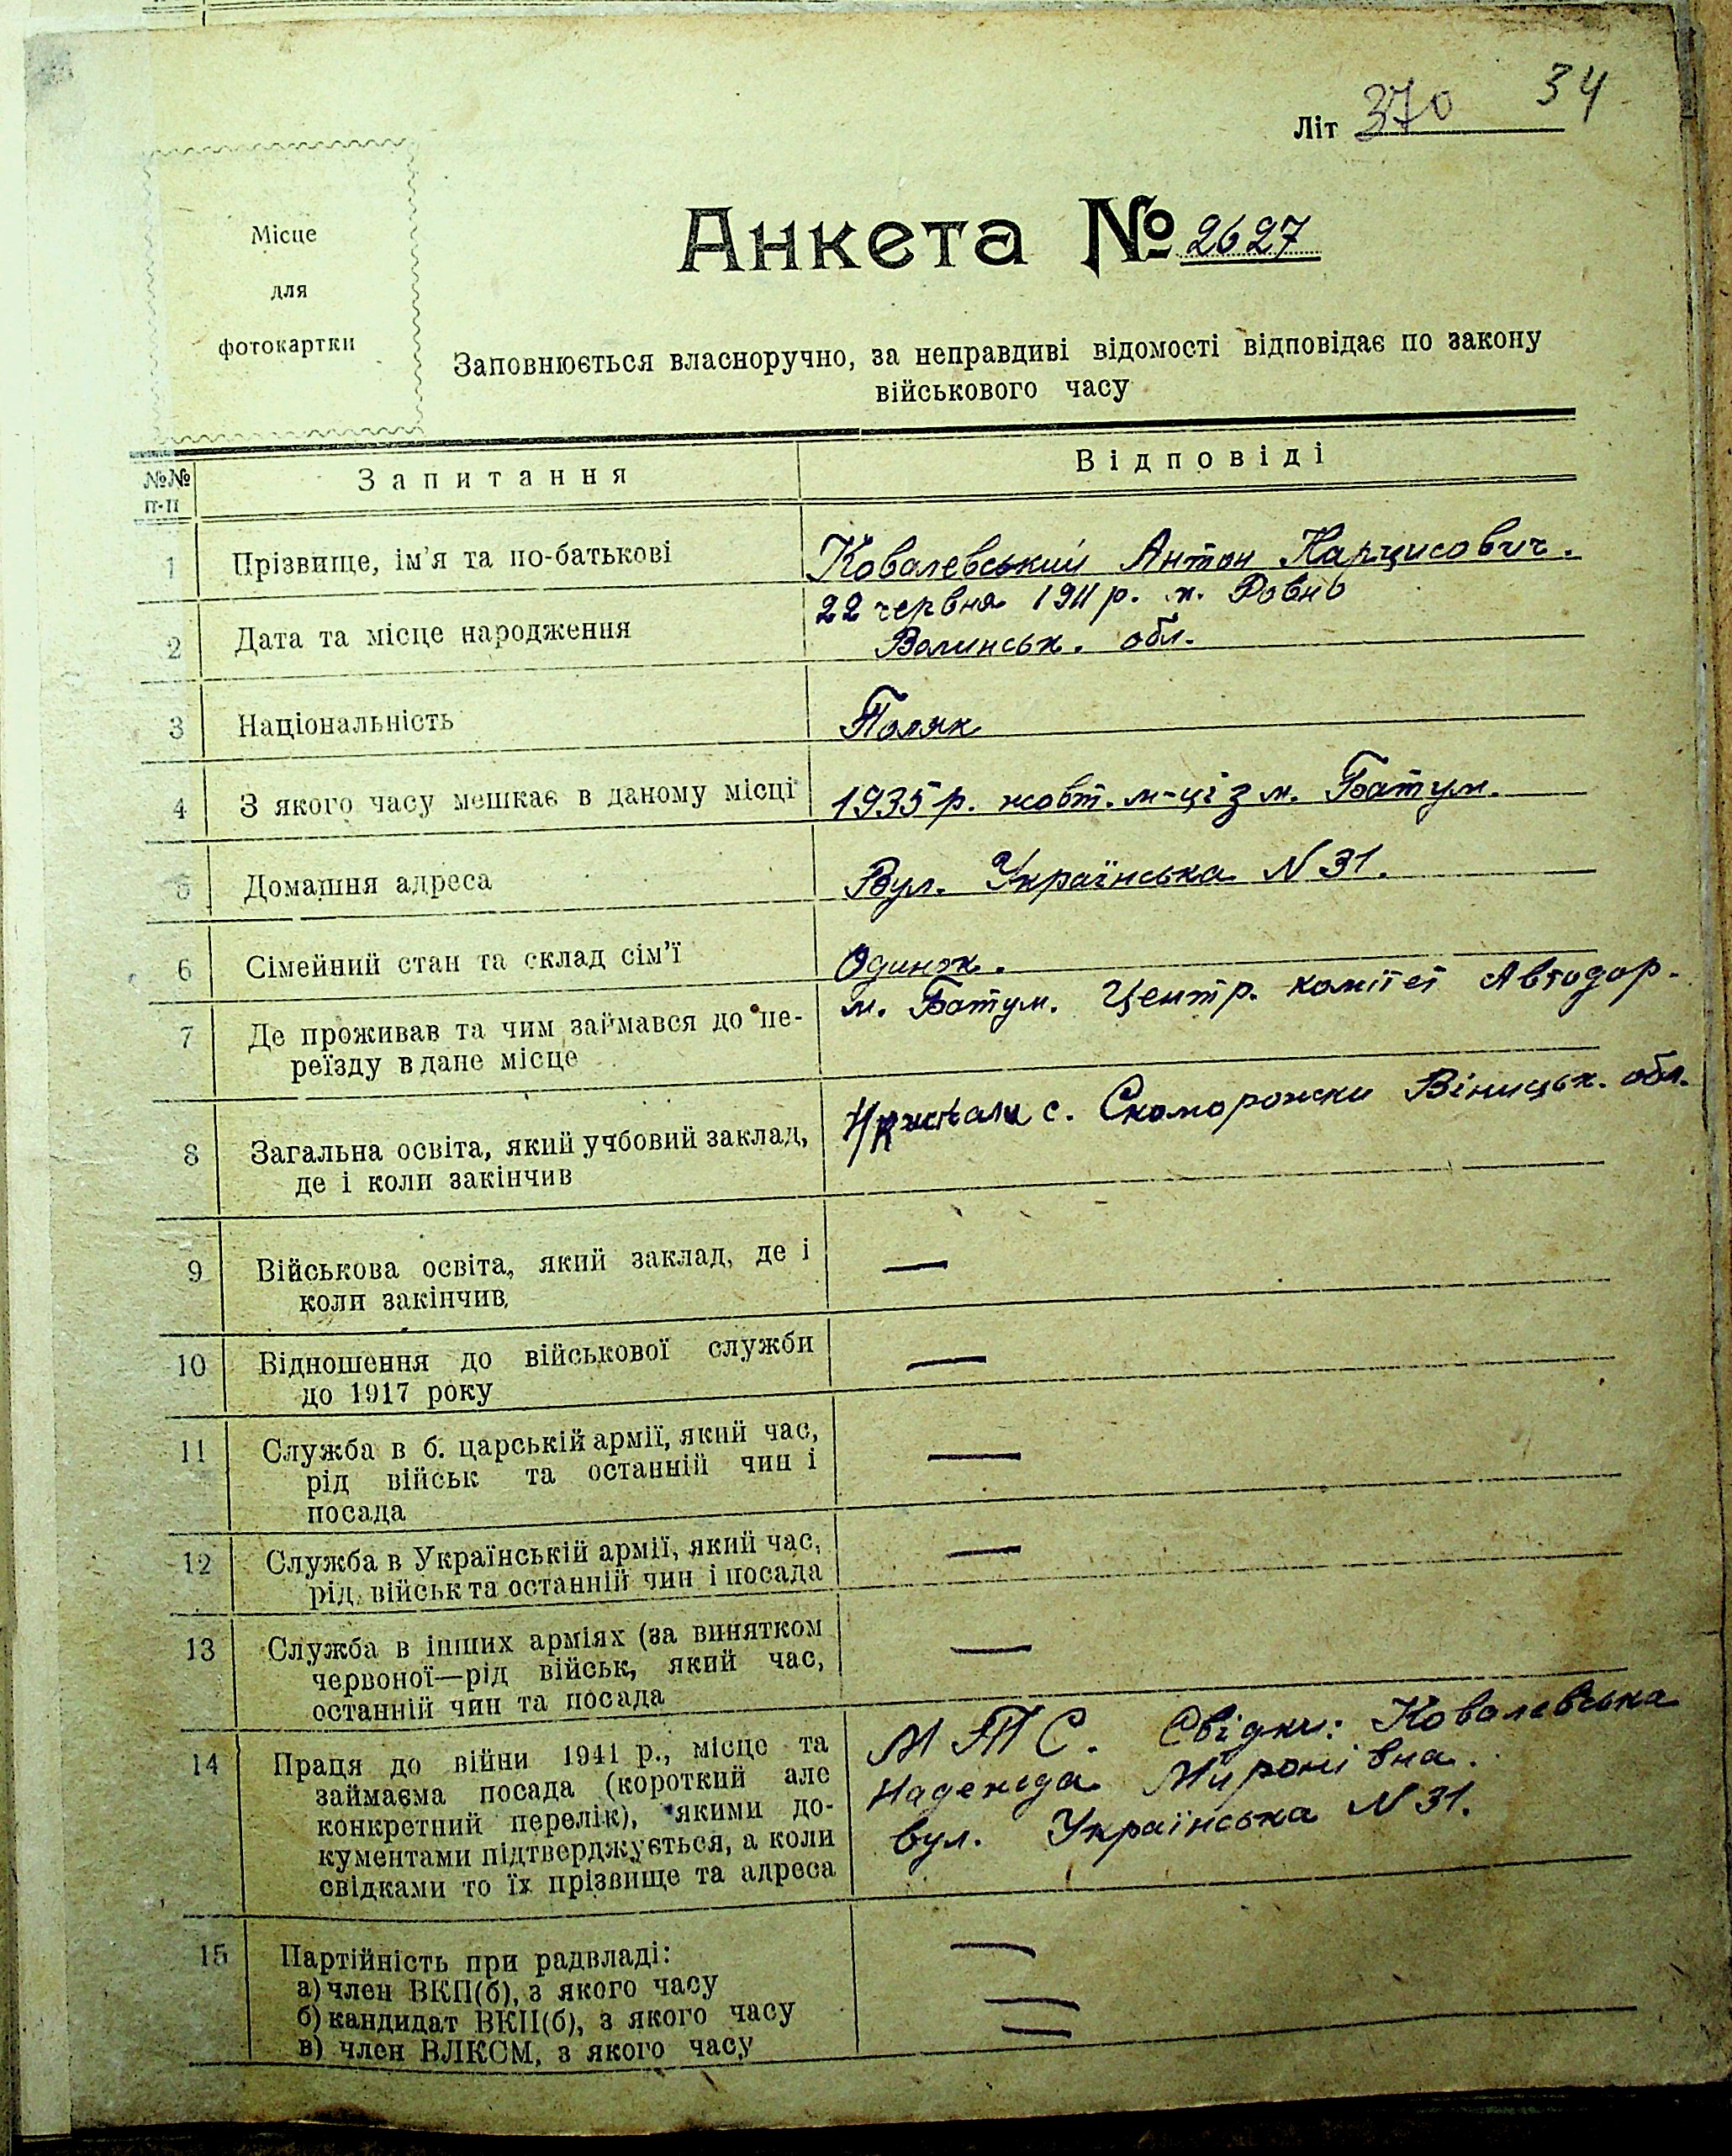 34
Літ 370
Місце
для
фотокартки
Анкета № 2627
Заповнюється власноручно, за неправдиві відомості відповідає по закону
військового часу
№№ п-п Запитання Відповіді
1 Прізвище, ім'я та по-батькові Ковалевський Антон Нарцисович.
2 Дата та місце народження 22 червня 1911 р. м. Ровно
Волинськ. обл.
3 Національність Поляк
4 З якого часу мешкає в даному місці 1935 р. жовт. м-ці з м. Батум.
5 Домашня адреса Вул. Українська N 31.
6 Сімейний стан та склад сім'ї Одинок.
7 Де проживав та чим займався до пе- м. Батум. Центр. комітет Автодор.
реїзду в дане місце
8 Загальна освіта, який учбовий заклад, с. Скоморошки Вінницьк. обл.
де і коли закінчив
9 Військова освіта, який заклад, де і —
коли закінчив
10 Відношення до військової служби —
до 1917 року
11 Служба в б. царській армії, який час, —
рід військ та останній чин і
посада
12 Служба в Українській армії, який час, —
рід військ та останній чин і посада
13 Служба в інших арміях (за винятком —
червоної—рід військ, який час,
останній чин та посада
14 Праця до війни 1941 р., місце та МТС. Свідки: Ковалевська
займаєма посада (короткий але Надежда Миронівна.
конкретний перелік), якими до- вул. Українська N 31.
кументами підтверджується, а коли
свідками то їх прізвище та адреса
15 Партійність при радвладі: —
а) член ВКП(б), з якого часу
б) кандидат ВКП(б), з якого часу —
в) член ВЛКСМ, з якого часу —